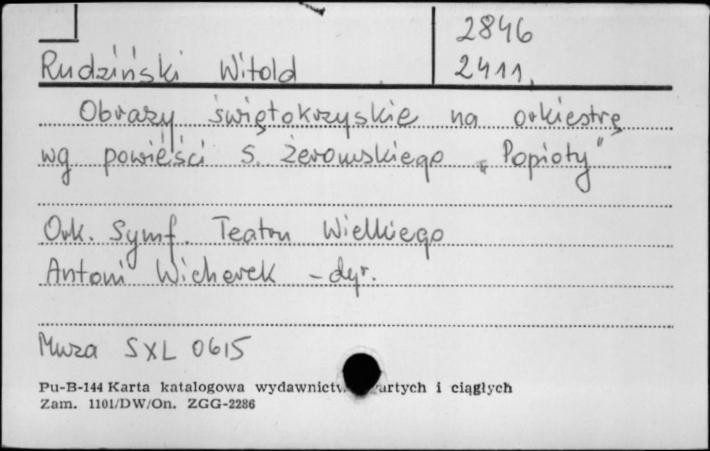 2846
Rudziński Witold 2411,
Obrazy świętokrzyskie na orkiestrę
wg powieści S. Żeromskiego „Popioły"
Ork. Symf. Teatru Wielkiego
Antoni Wicherek – dyr.
Muza SXL 0615
Pu-B-144 Karta katalogowa wydawnictw zwartych i ciągłych
Zam. 1101/DW/On. ZGG-2286